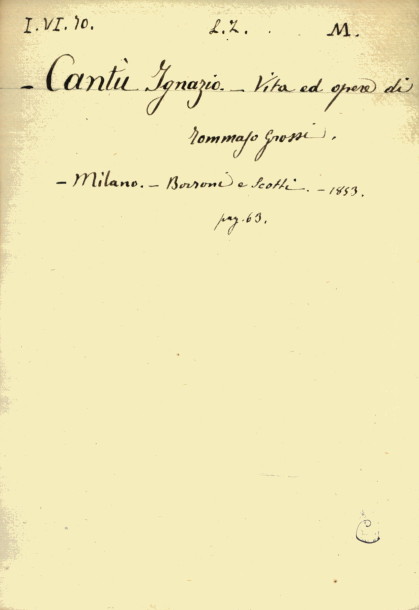 I.VI.70. L.Z. M.
- Cantù Ignazio. - Vita ed opere di
Tommaso Grossi.
- Milano. - Borroni e Scotti. - 1853.
pag. 63.
C